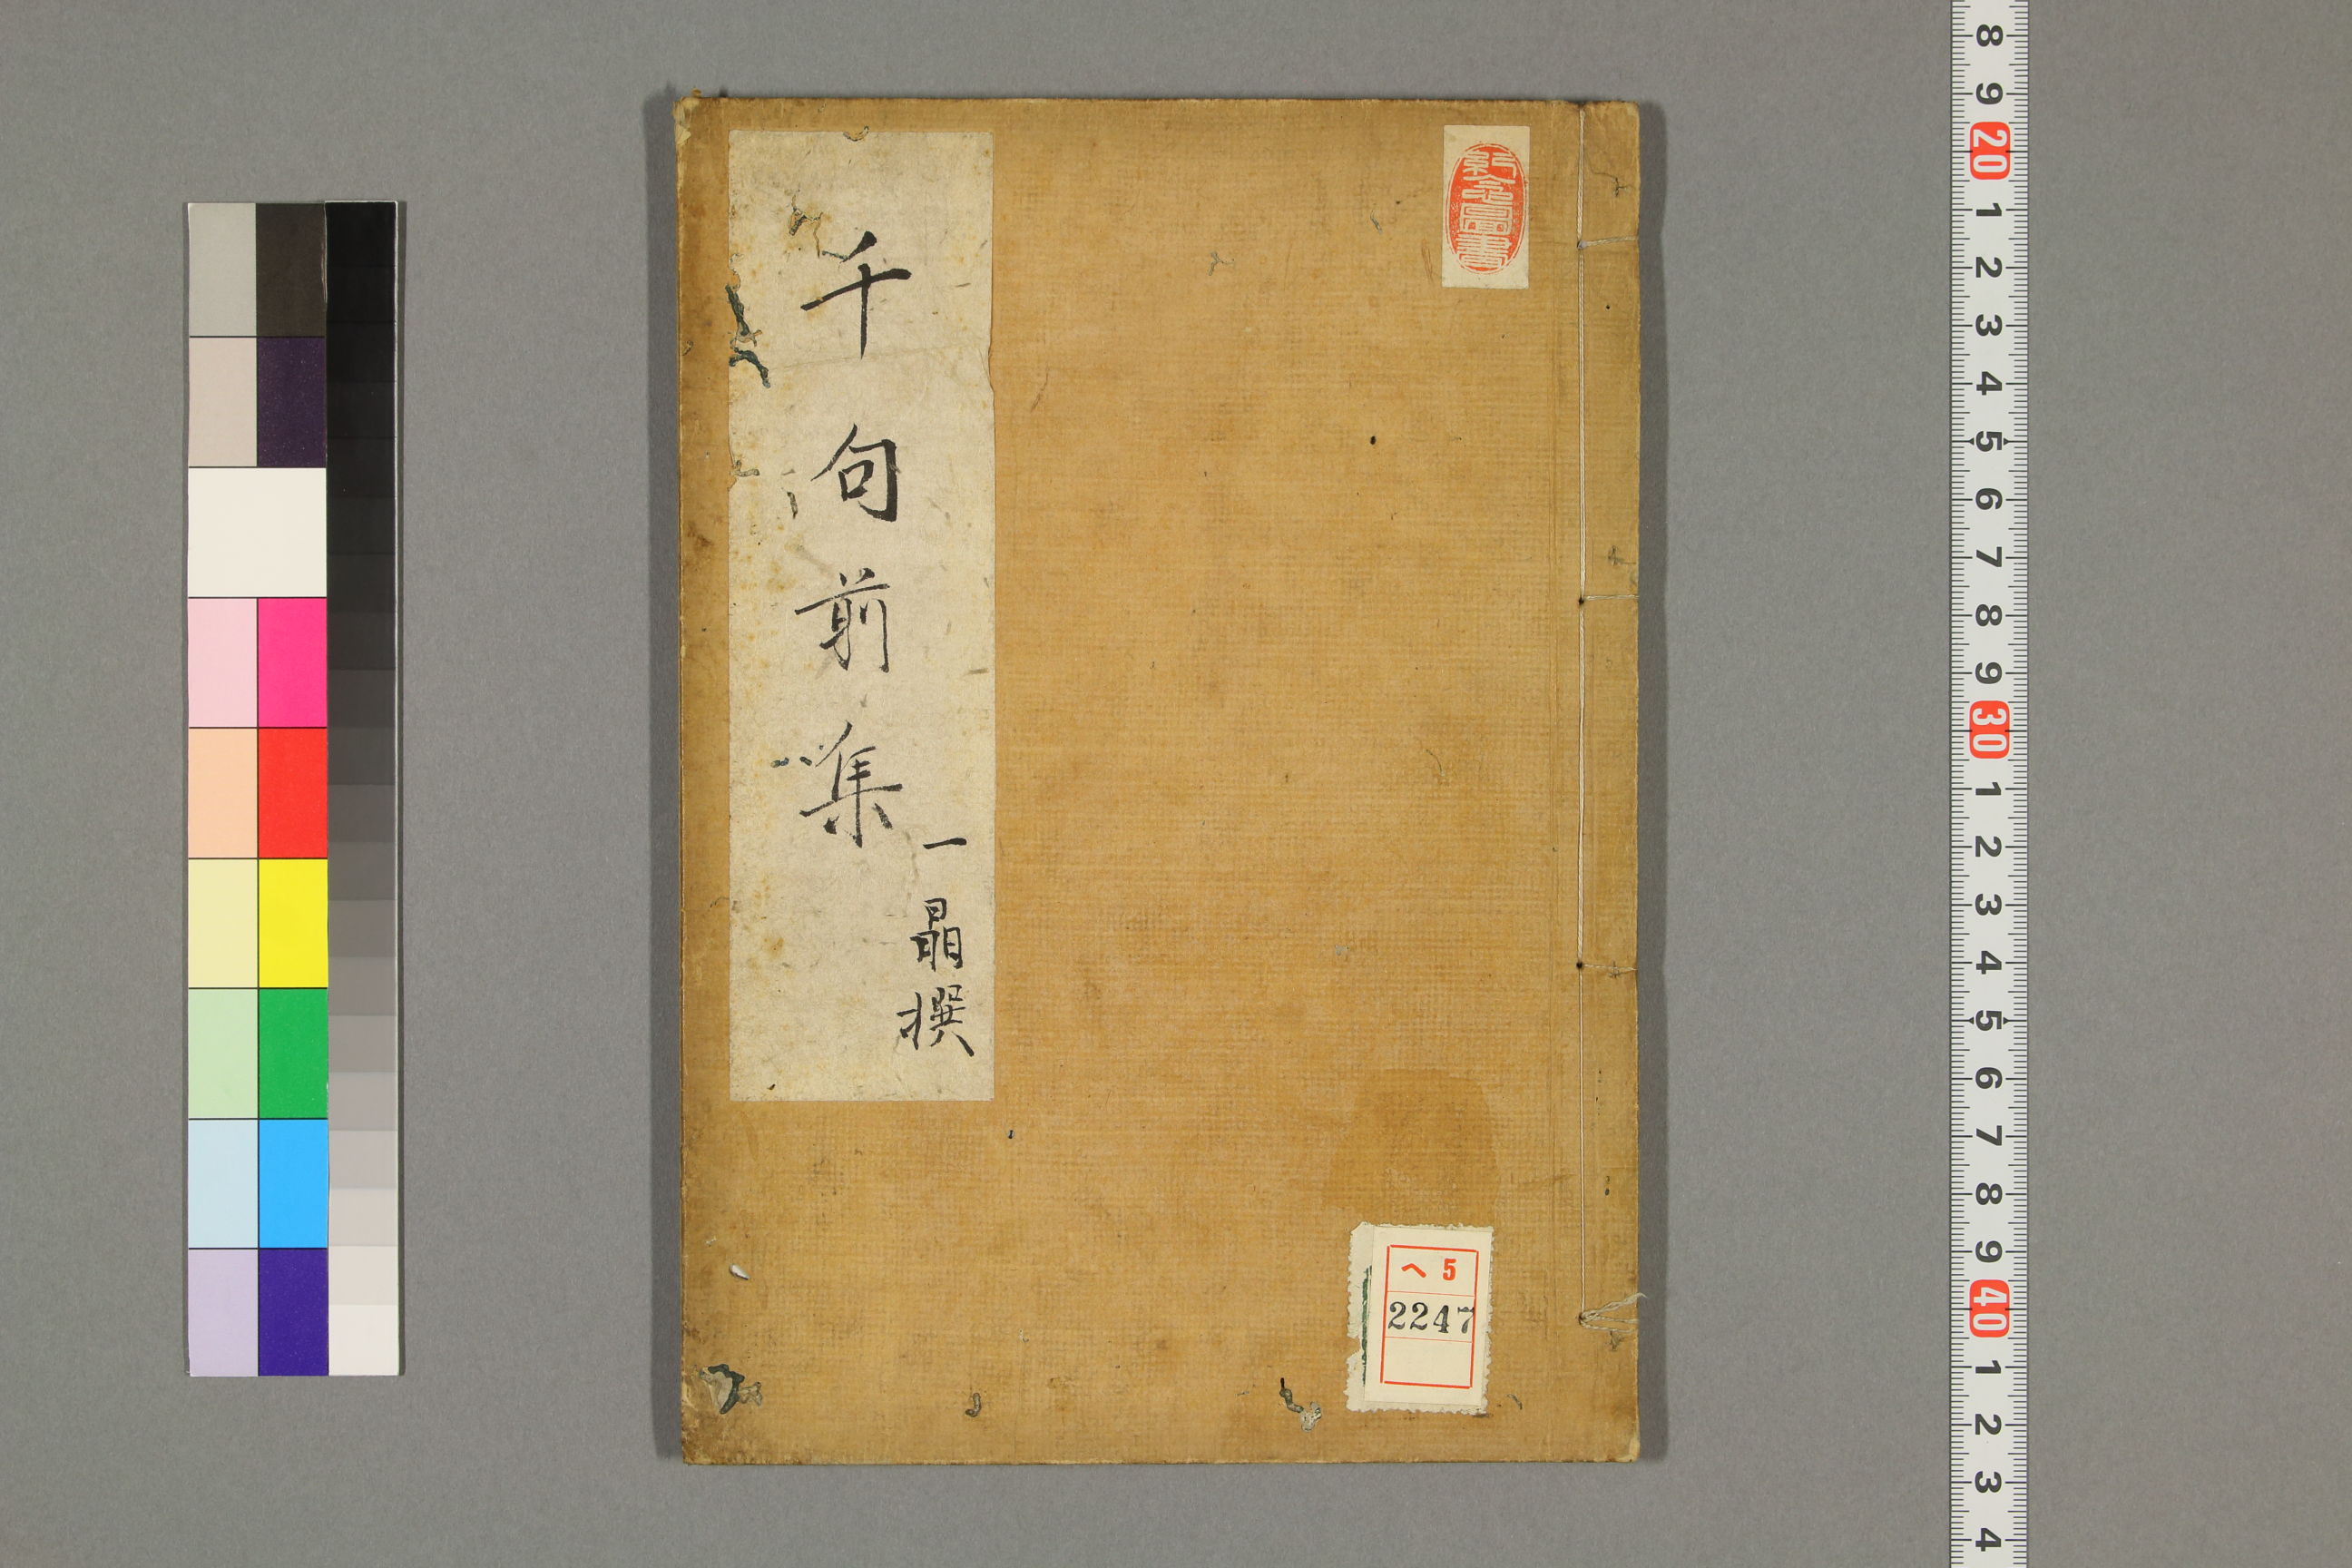 千句前集
一晶撰
へ5
2247
8
9
20
1
2
3
4
5
6
7
8
9
30
1
2
3
4
5
6
7
8
9
40
1
2
3
4